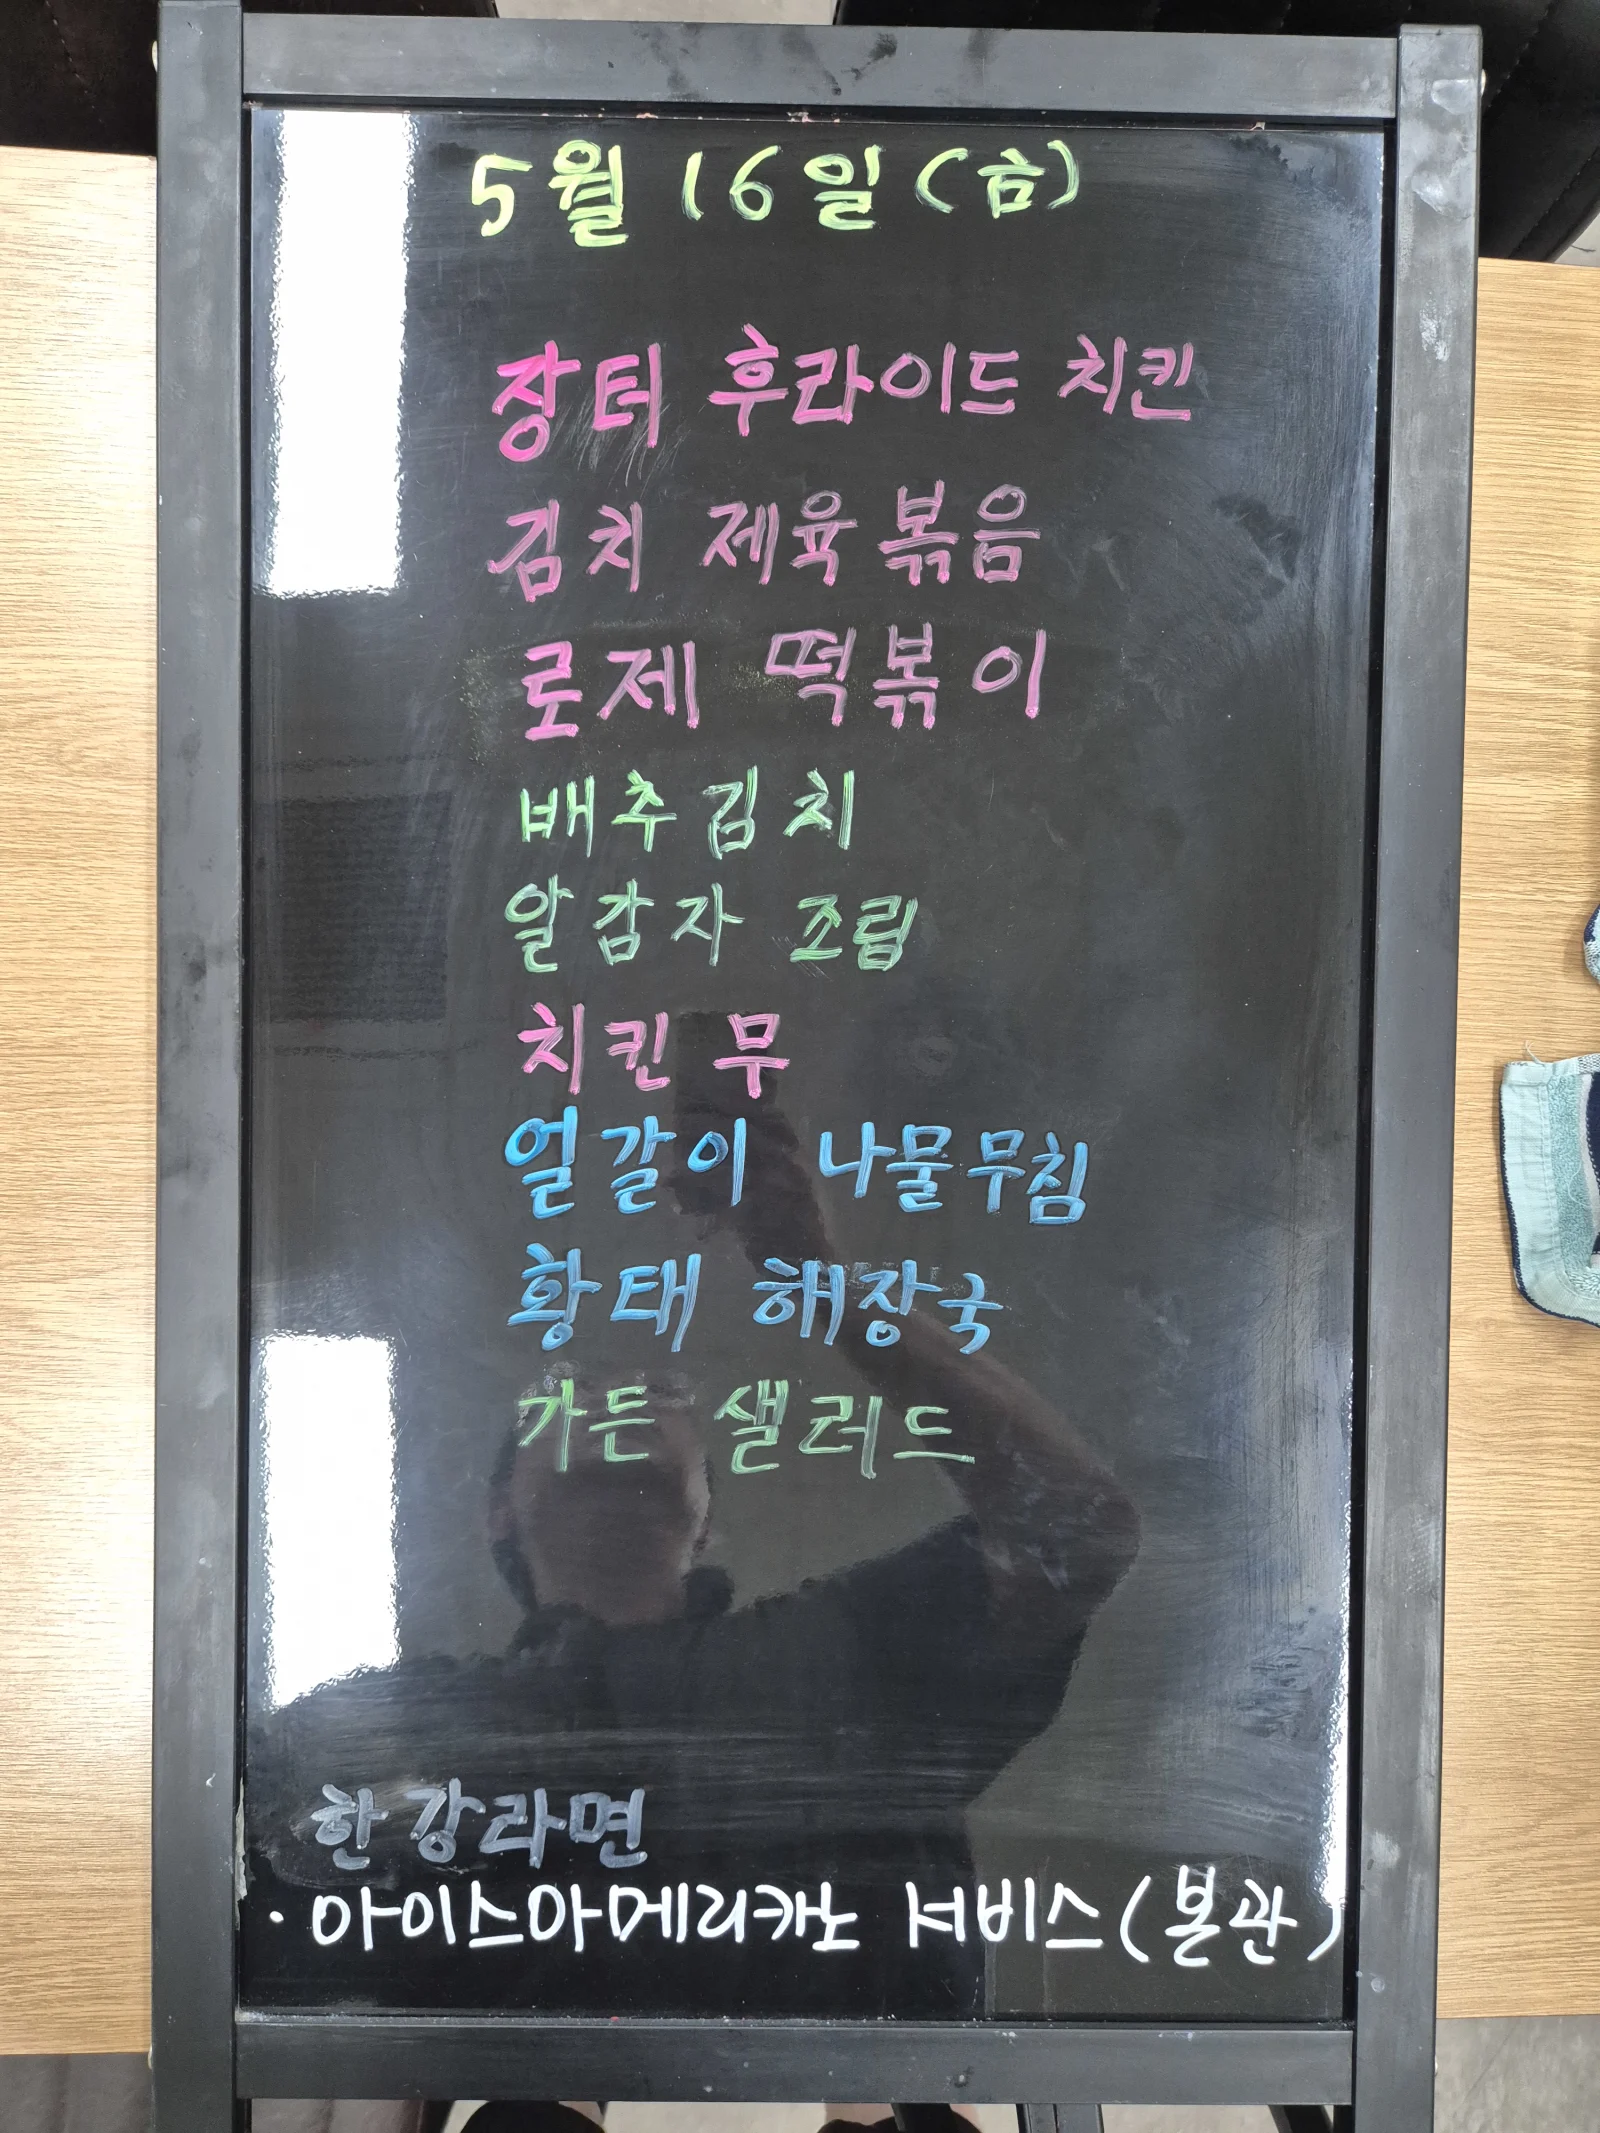 5월 16일 (금)
장터 후라이드 치킨
김치 제육볶음
로제 떡볶이
배추김치
알감자 조림
치킨 무
얼갈이 나물무침
황태 해장국
가든 샐러드
한강라면
· 아이스아메리카노 서비스 (본관)